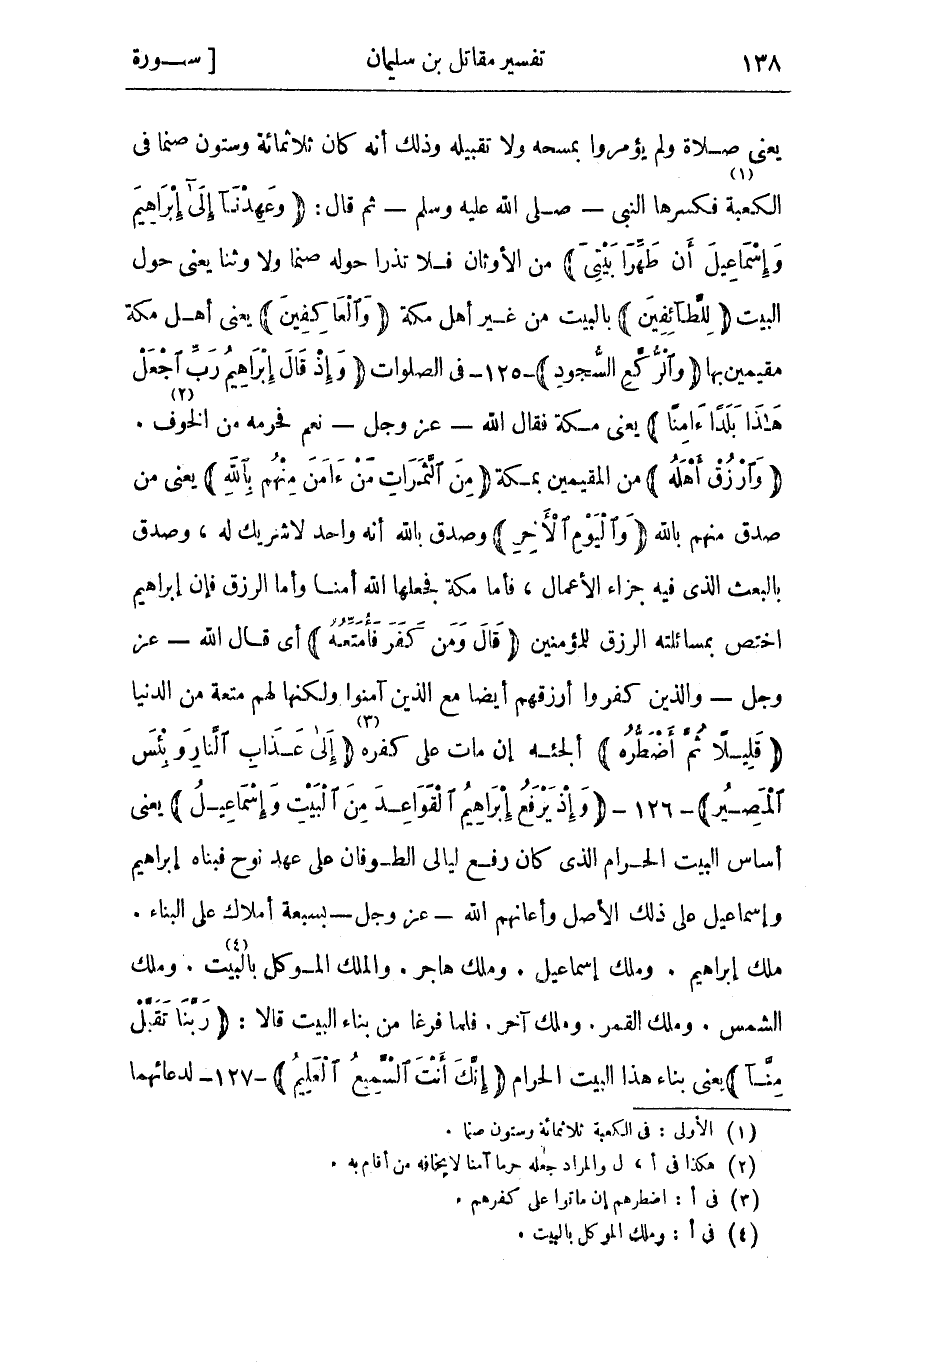 ١٣٨ تفسير مقاتل بن سليمان [ ســورة
يعنى صلاة ولم يؤمروا بمسحه ولا تقبيله وذلك أنه كان ثلاثمائة وستون صنما فى
الكعبة(١) فكسرها النبى — صلى الله عليه وسلم — ثم قال : ﴿ وَعَهِدْنَآ إِلَىٰٓ إِبْرَاهِيمَ
وَإِسْمَاعِيلَ أَن طَهِّرَا بَيْتِىَ ﴾ من الأوثان فلا تذرا حوله صنما ولا وثنا يعنى حول
البيت ﴿ لِلطَّآئِفِينَ ﴾ بالبيت من غير أهل مكة ﴿ وَٱلْعَاكِفِينَ ﴾ يعنى أهل مكة
مقيمين بها ﴿ وَٱلرُّكَّعِ السُّجُودِ ﴾ -١٢٥- فى الصلوات ﴿ وَإِذْ قَالَ إِبْرَاهِيمُ رَبِّ ٱجْعَلْ
هَٰذَا بَلَدًا ءَامِنًا ﴾ يعنى مكة فقال الله — عز وجل — نعم فحرمه من الخوف(٢) .
﴿ وَٱرْزُقْ أَهْلَهُ ﴾ من المقيمين بمكة ﴿ مِنَ ٱلثَّمَرَاتِ مَنْ ءَامَنَ مِنْهُم بِٱللَّهِ ﴾ يعنى من
صدق منهم بالله ﴿ وَٱلْيَوْمِ ٱلْأَخِرِ ﴾ وصدق بالله أنه واحد لاشريك له ، وصدق
بالبعث الذى فيه جزاء الأعمال ، فأما مكة فجعلها الله أمنا وأما الرزق فإن إبراهيم
اختص بمسائلته الرزق للمؤمنين ﴿ قَالَ وَمَن كَفَرَ فَأُمَتِّعُهُ ﴾ أى قال الله — عز
وجل — والذين كفروا أرزقهم أيضا مع الذين آمنوا ولكنها لهم متعة من الدنيا
﴿ قَلِيلًا ثُمَّ أَضْطَرُّهُ ﴾ ألجئه إن مات على كفره(٣) ﴿ إِلَىٰ عَذَابِ ٱلنَّارِ وَبِئْسَ
ٱلْمَصِيرُ ﴾ - ١٢٦ - ﴿ وَإِذْ يَرْفَعُ إِبْرَاهِيمُ ٱلْقَوَاعِدَ مِنَ ٱلْبَيْتِ وَإِسْمَاعِيلُ ﴾ يعنى
أساس البيت الحرام الذى كان رفع ليالى الطوفان على عهد نوح فبناه إبراهيم
وإسماعيل على ذلك الأصل وأعانهم الله — عز وجل — بسبعة أملاك على البناء .
ملك إبراهيم . وملك إسماعيل . وملك هاجر . والملك الموكل بالبيت(٤) . وملك
الشمس . وملك القمر . وملك آخر . فلما فرغا من بناء البيت قالا : ﴿ رَبَّنَا تَقَبَّلْ
مِنَّآ ﴾ يعنى بناء هذا البيت الحرام ﴿ إِنَّكَ أَنْتَ ٱلسَّمِيعُ ٱلْعَلِيمُ ﴾ -١٢٧- لدعائهما
(١) الأولى : فى الكعبة ثلاثمائة وستون صنما .
(٢) هكذا فى أ ، ل والمراد جعله حرما آمنا لايخافه من أقام به .
(٣) فى أ : اضطرهم إن ماتوا على كفرهم .
(٤) فى أ : وملك الموكل بالبيت .